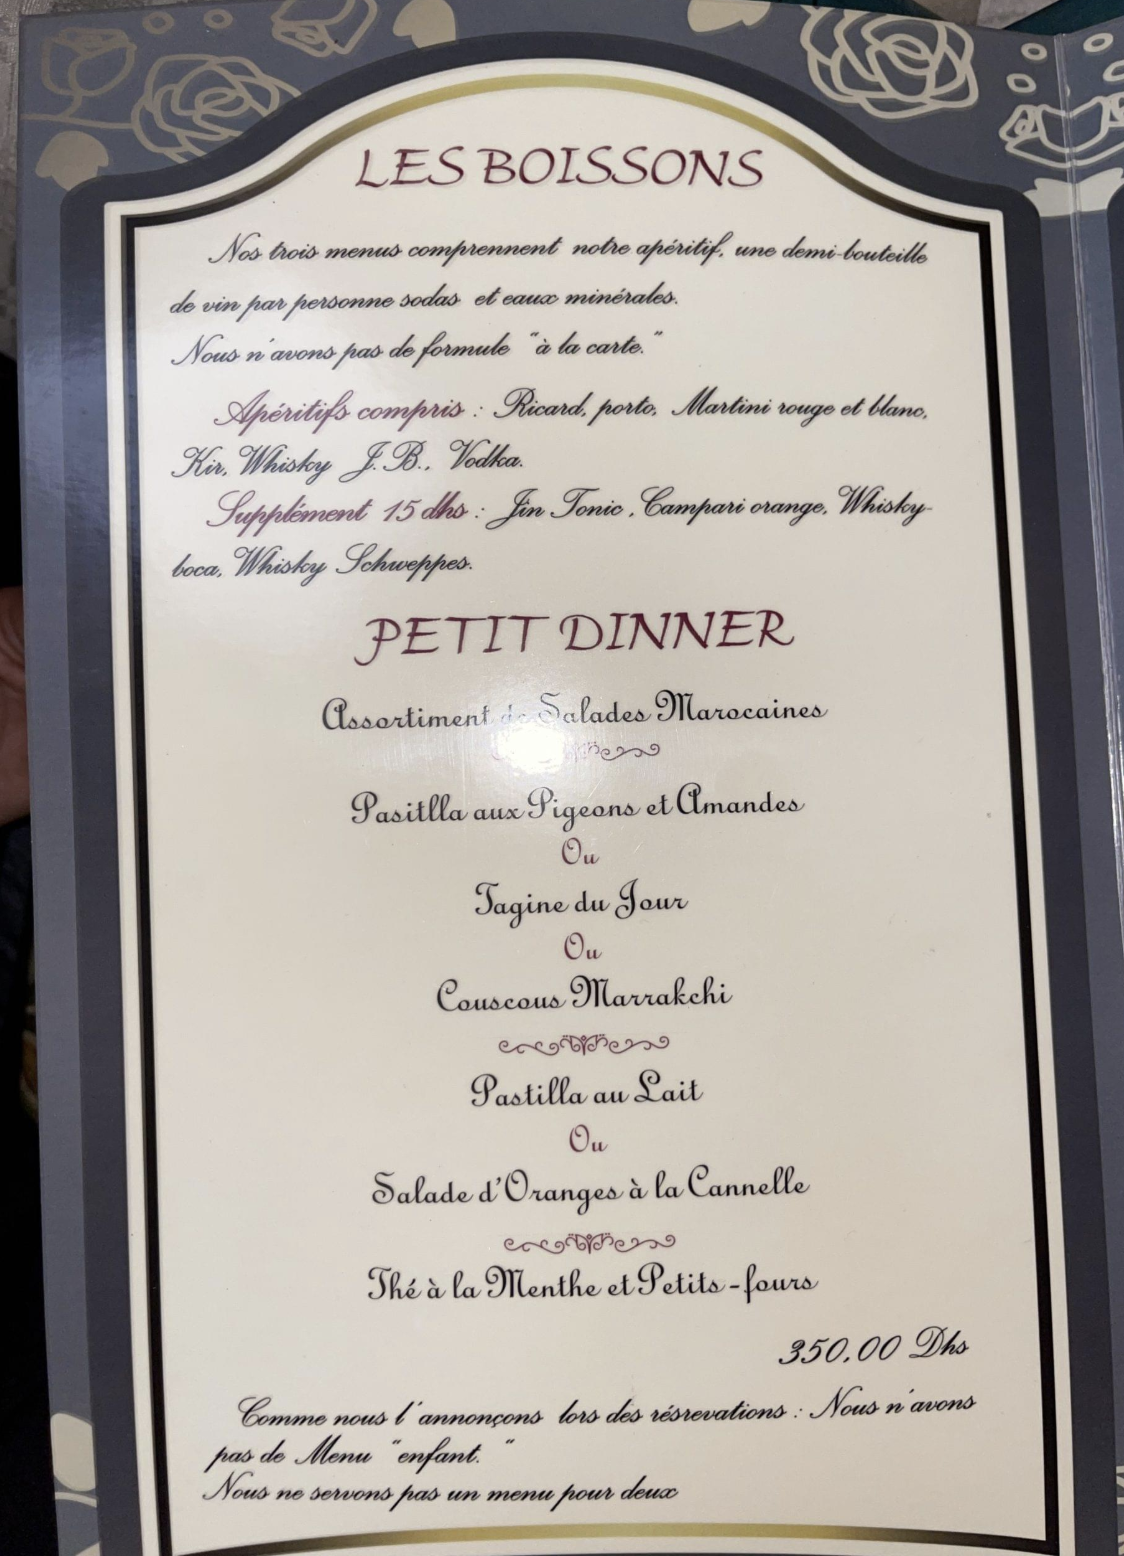 LES BOISSONS
Nos trois menus comprennent notre apéritif, une demi-bouteille
de vin par personne sodas et eaux minérales.
Nous n'avons pas de formule "à la carte."
Apéritifs compris : Ricard, porto, Martini rouge et blanc,
Kir, Whisky J.B., Vodka.
Supplément 15 dhs : Jin Tonic, Campari orange, Whisky-
boca, Whisky Schweppes.
PETIT DINNER
Assortiment de Salades Marocaines
Pasitlla aux Pigeons et Amandes
Ou
Tagine du Jour
Ou
Couscous Marrakchi
Pastilla au Lait
Ou
Salade d'Oranges à la Cannelle
Thé à la Menthe et Petits-fours
350,00 Dhs
Comme nous l'annonçons lors des résrevations : Nous n'avons
pas de Menu "enfant."
Nous ne servons pas un menu pour deux